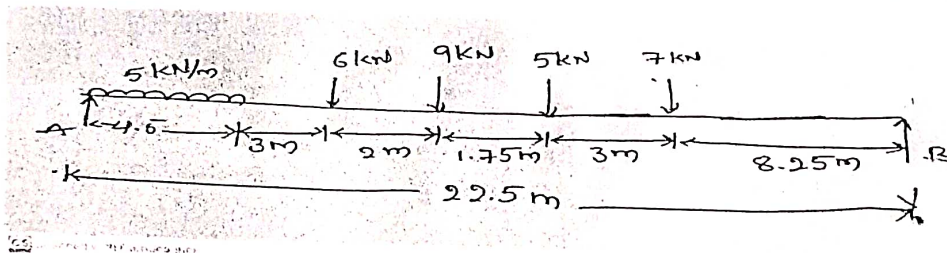 6kN 9KN 5KN 7KN
5 KN/m
A 4.5 3m 2m 1.75m 3m 8.25m B
22.5m